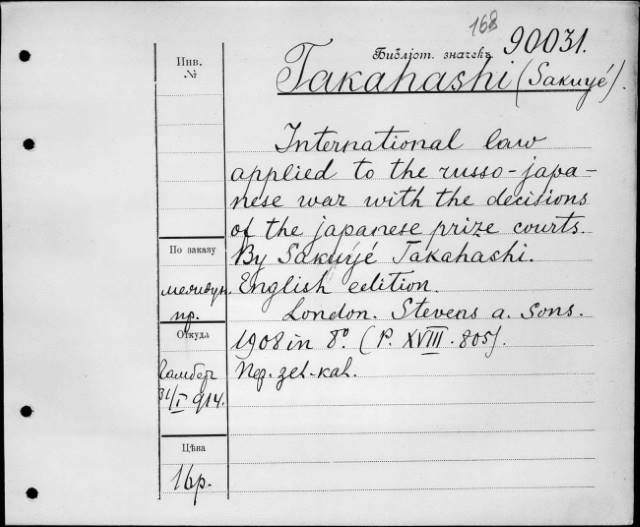 168
Библіот. значекъ 90031.
Инв.
№
Takahashi (Sakuyé).
International law
applied to the russo-japa-
nese war with the decisions
of the japanese prize courts.
По заказу
By Sakuyé Takahashi.
English edition.
пр.
London. Stevens a. Sons.
Откуда
1908 in 8° (P. XVIII. 805).
31/I 914.
Цѣна
16р.